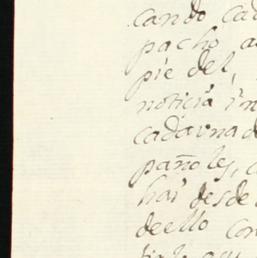 cando cad
pacho a
pie del,
noticia in
cadauna d
pañoles, c
hai desde
deello con